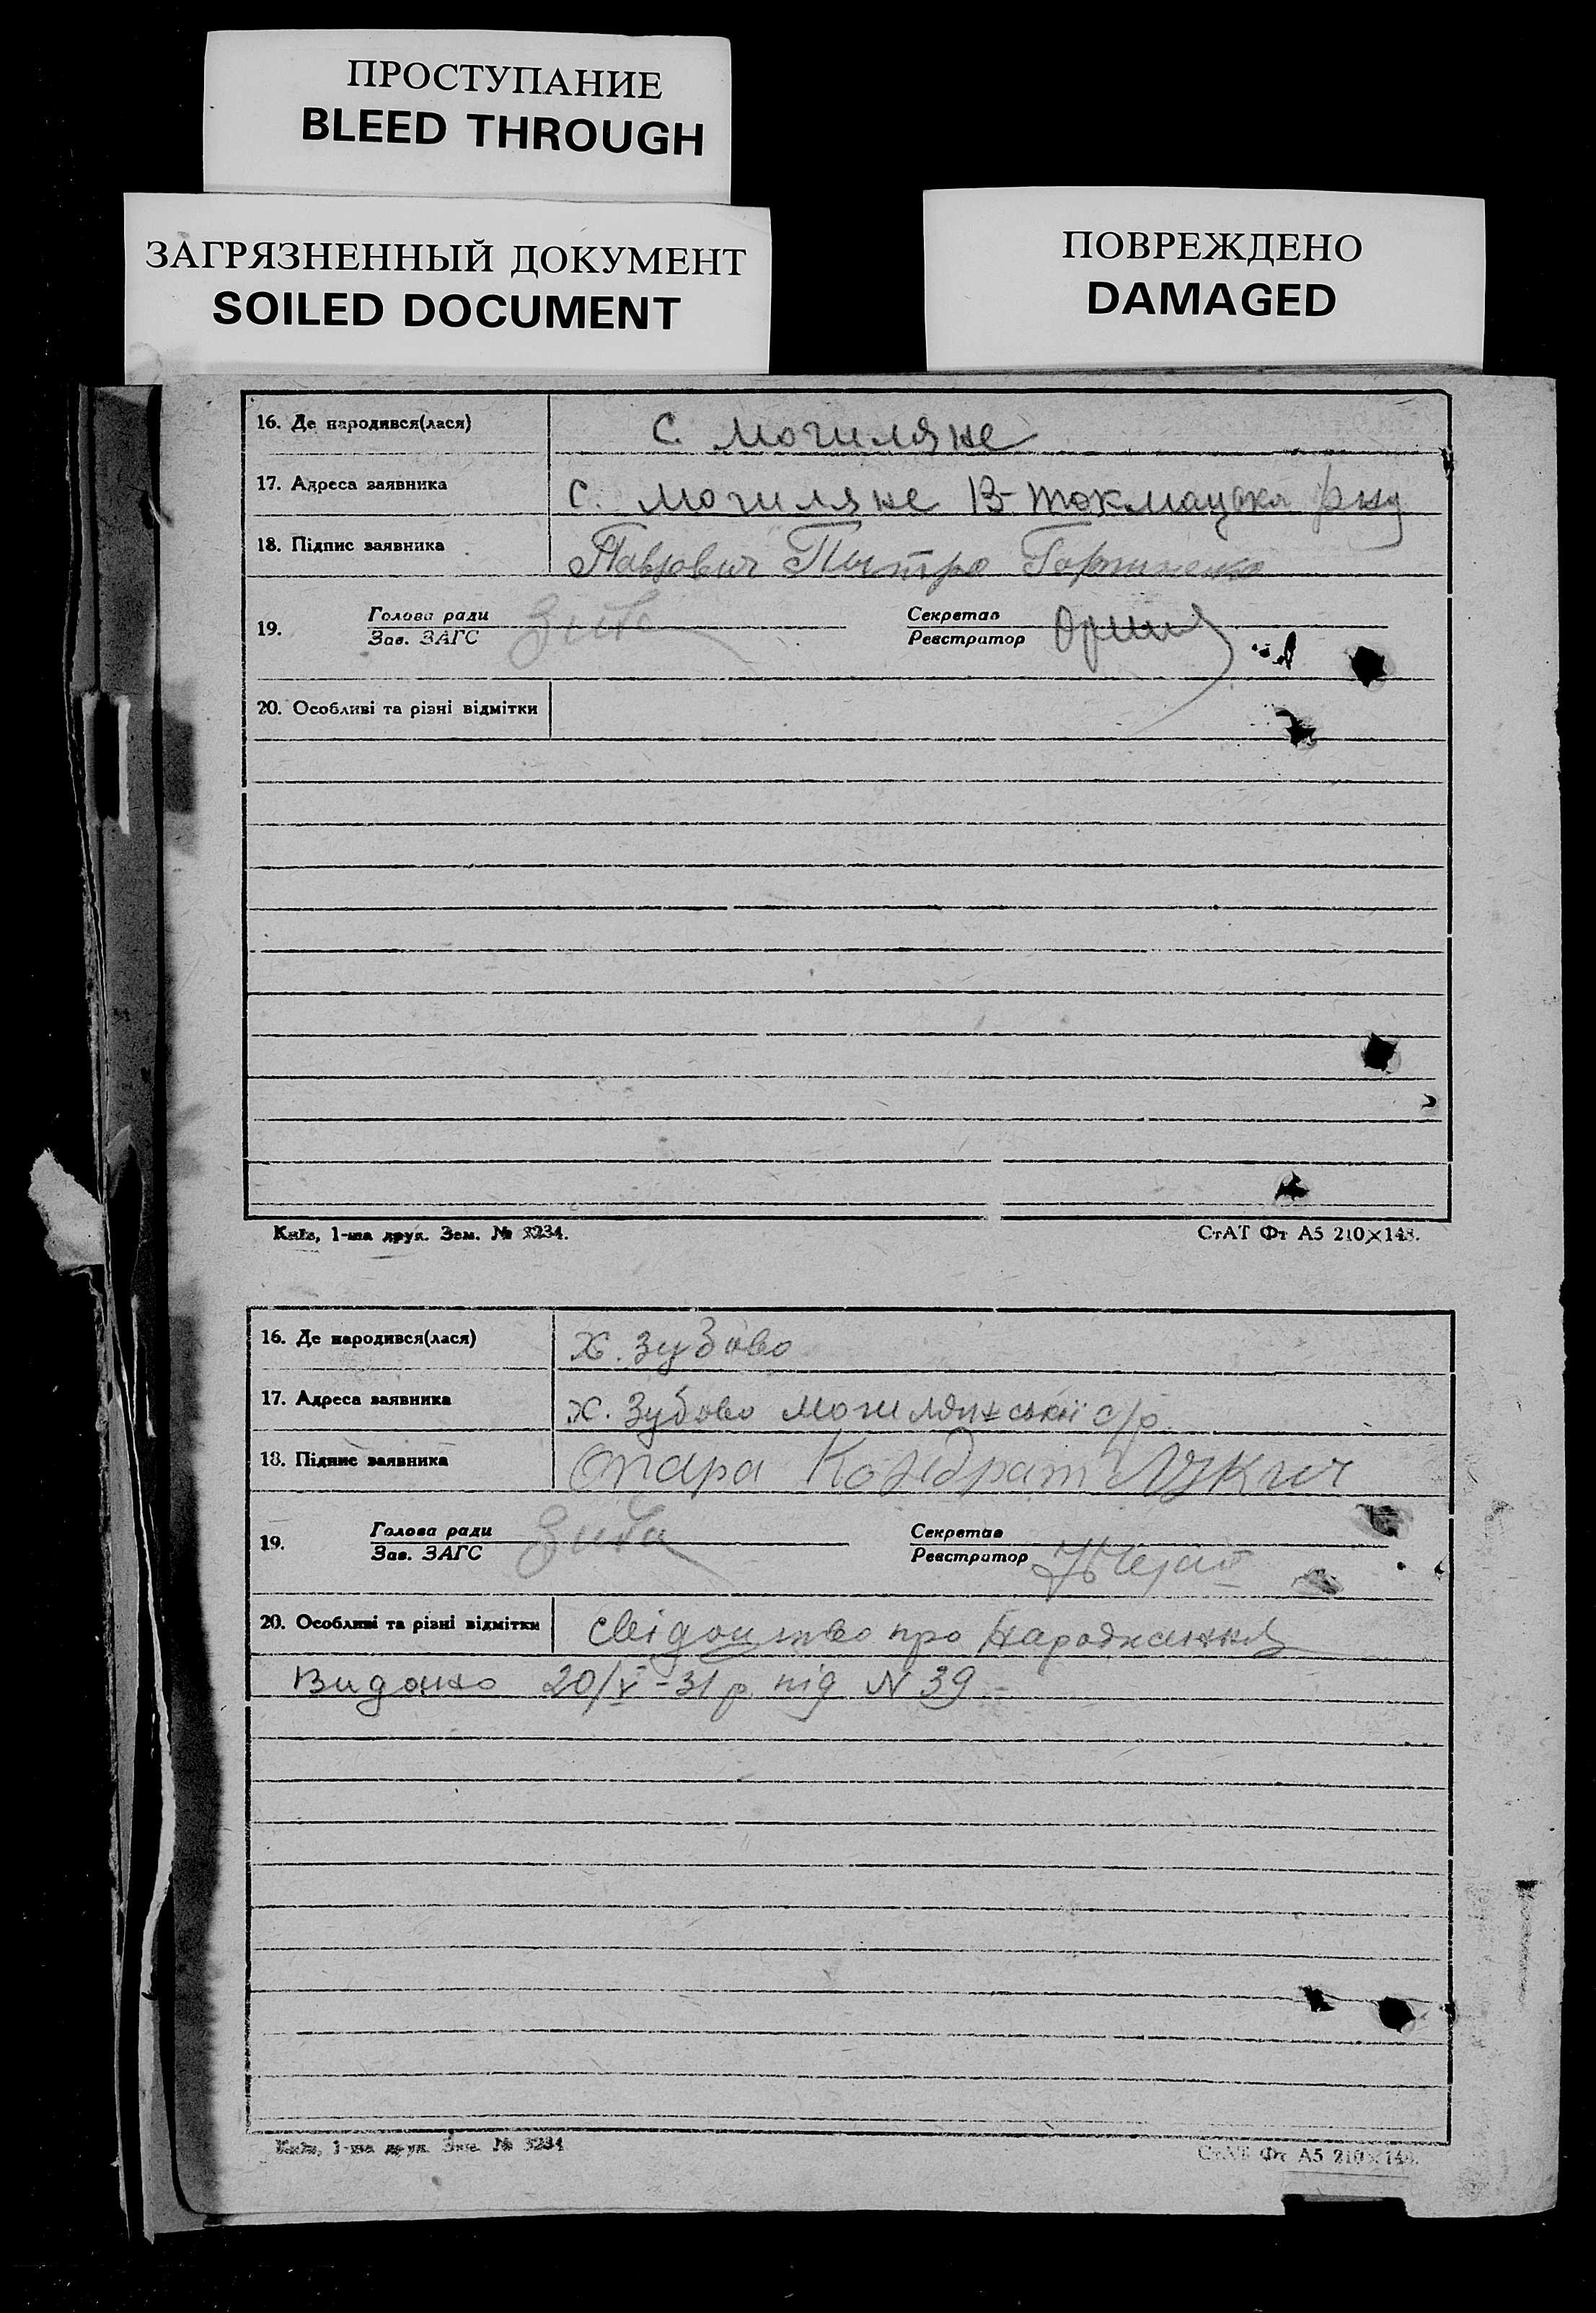 ПРОСТУПАНИЕ
BLEED THROUGH
ЗАГРЯЗНЕННЫЙ ДОКУМЕНТ
SOILED DOCUMENT
ПОВРЕЖДЕНО
DAMAGED
16. Де народився(лася) с. могиляне
17. Адреса заявника с. могиляне В-токмацька
18. Підпис заявника Петро
19. Голова ради Зиба Секретар
Зав. ЗАГС Реєстратор
20. Особливі та різні відмітки
Київ, 1-ша друк. Зам. № 3234.
СтАТ Фт А5 210×148.
16. Де народився(лася) х. зубово
17. Адреса заявника х. Зубово могилянської с/р.
18. Підпис заявника Опара Кондрат Лукич
19. Голова ради Зиба Секретар
Зав. ЗАГС Реєстратор
20. Особливі та різні відмітки свідоцтво про народження
Видано 20/V-31 р. під N 39
Київ, 1-ша друк. Зам. № 3234
СтАТ Фт А5 210×148.